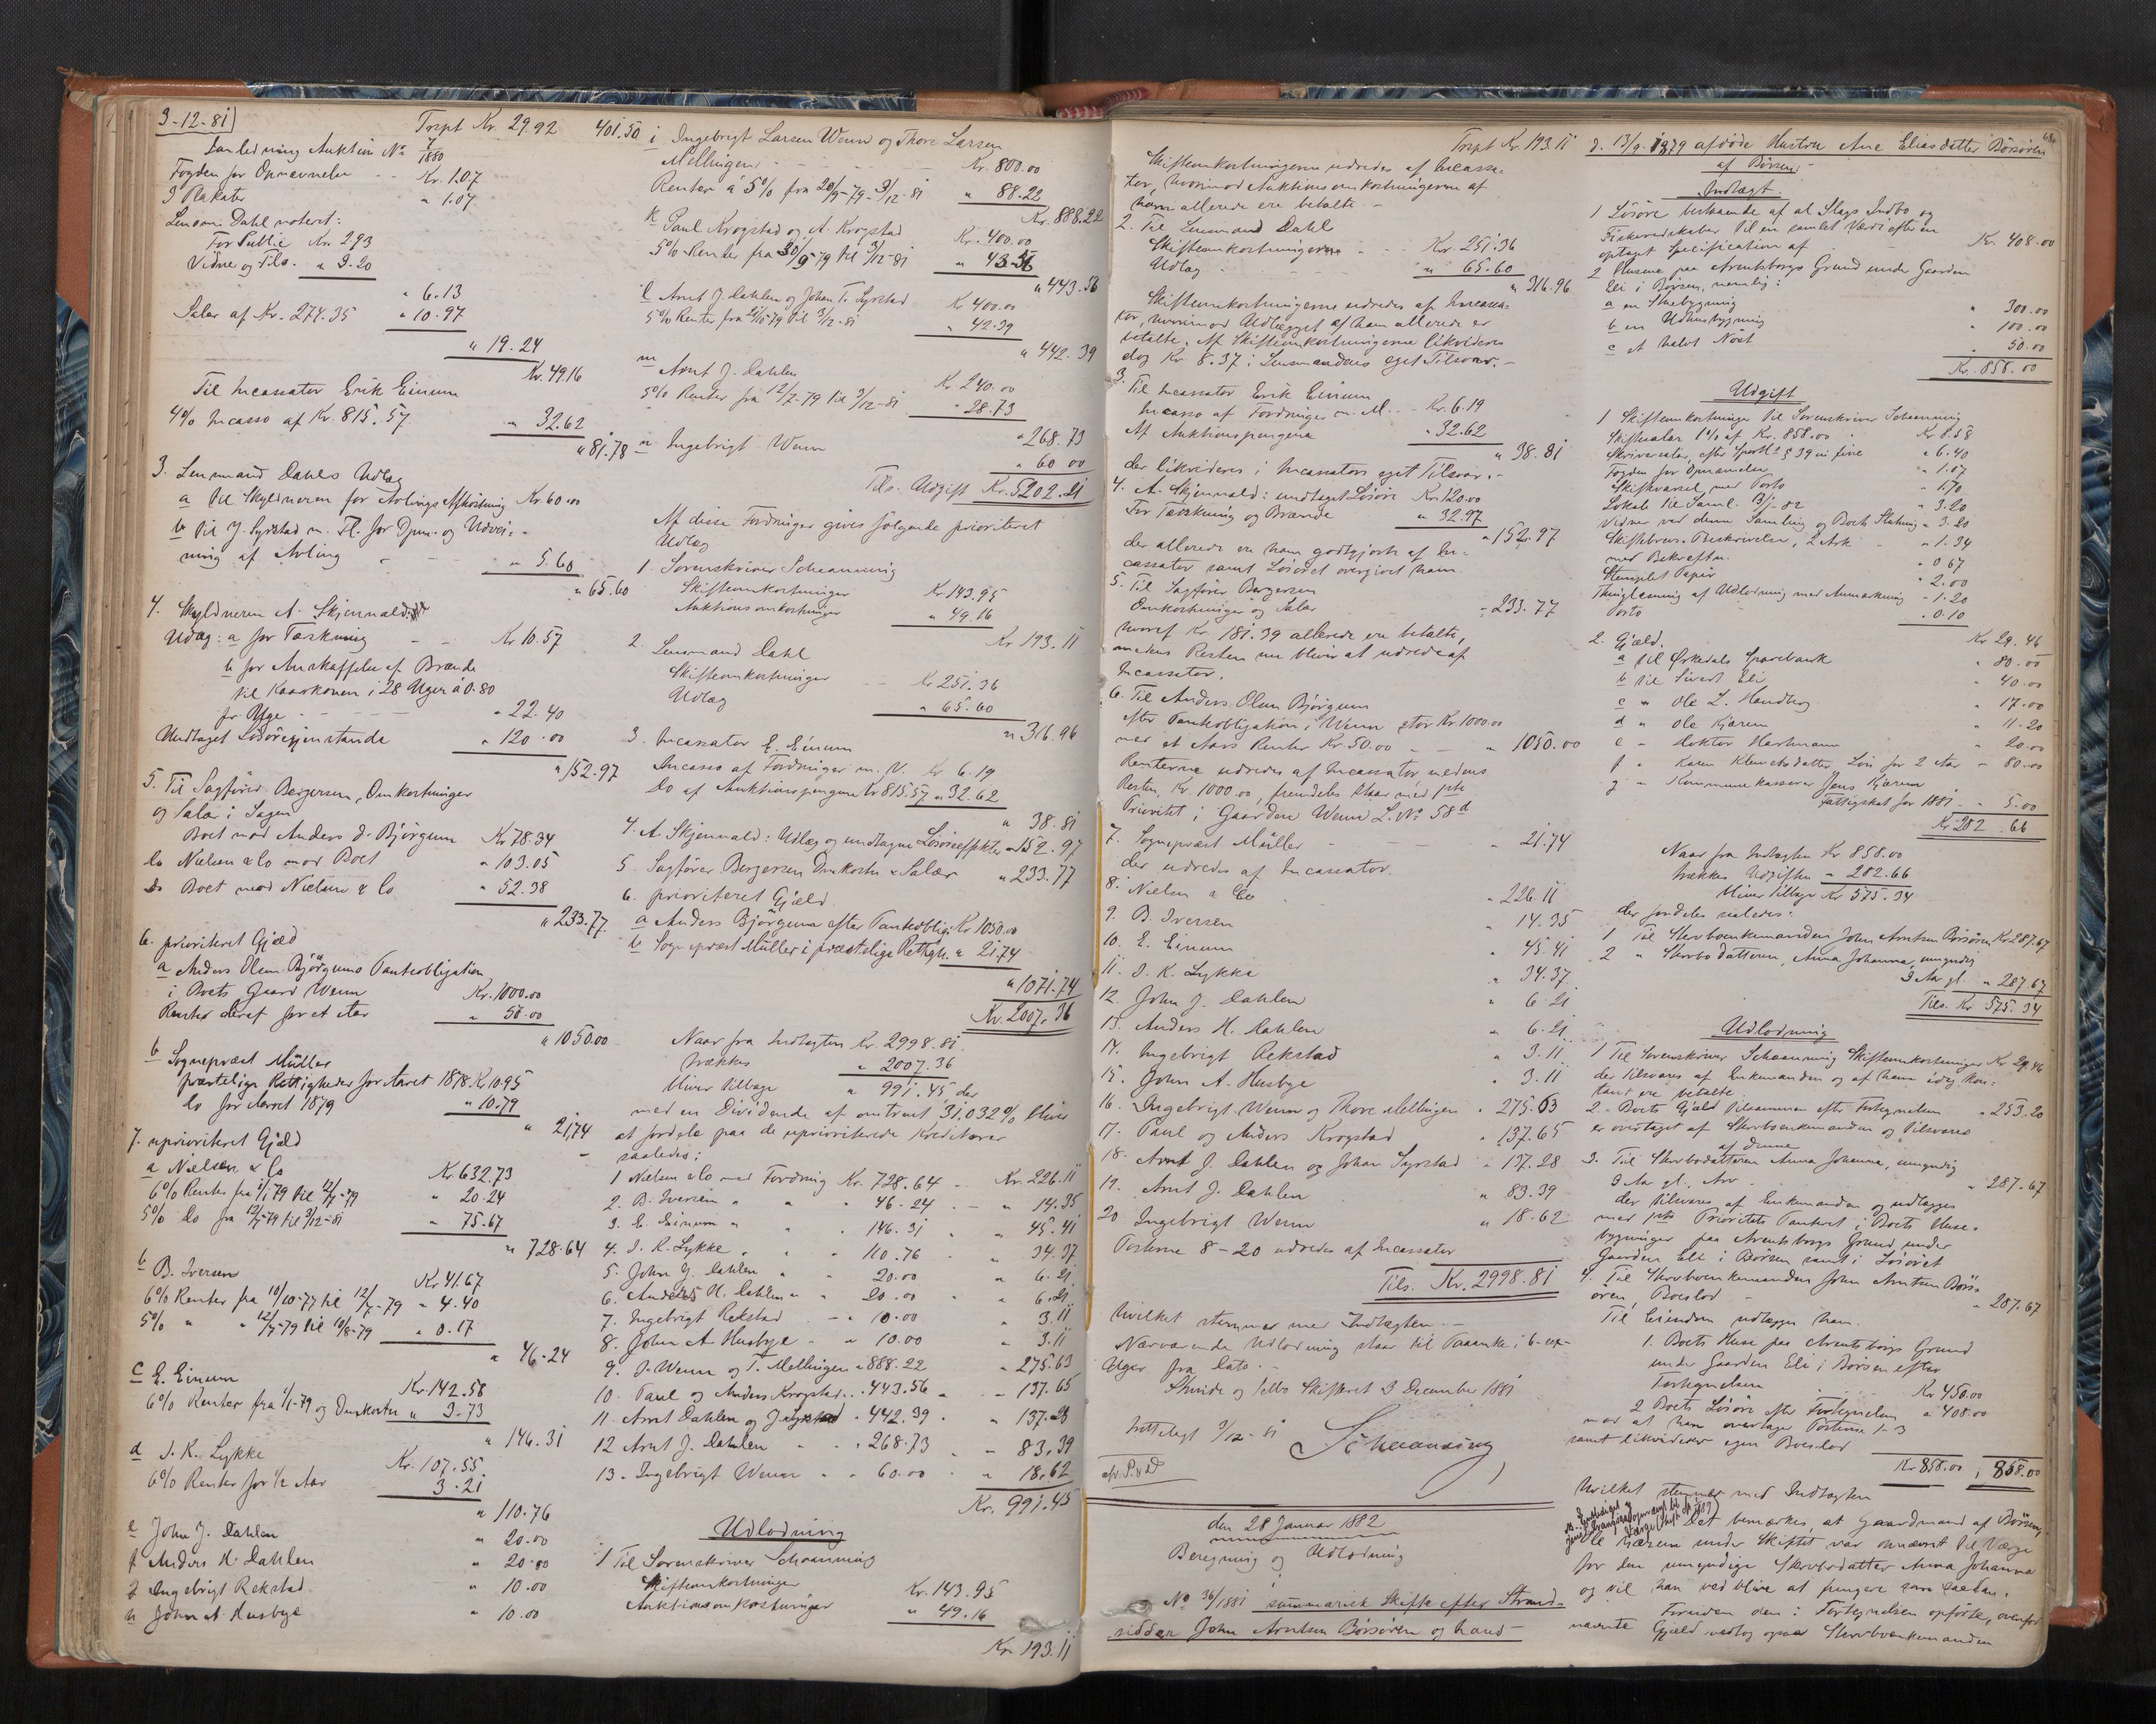 3-12-81
Trspt Kr. 29.92 401.50
Auktion No 7/1880
Fogden for Opnævnelse - - Kr. 1.07
3 Plakater " 1.07
Lensm. Dahl noteret:
Kr. 2.93
Vidne og Tils. " 3.20
" 6.13
Salær af Kr. 274.35 " 10.97
" 19.24
Kr. 49.16
Til Incassator Erik Einum
4% Incasso af Kr. 815.57 " 32.62
" 81.78
3. Lensmand Dahls Udlæg
a til Skyldneren for Avlings Afhøstning Kr. 60.00
b til J. Syrstad m. Fl. for Opm. og Udvei-
ning af Avling " 5.60
" 65.60
4. Skyldneren A. Skjenvald:
Udlæg: a for Tærskning - - Kr. 10.57
b for Anskaffelse af Brænde
til Kaarkonen i 28 Uger á 0.80
pr. Uge - - - " 22.40
Undtaget Løsøregjenstande " 120.00
" 152.97
5. Til Sagfører Bergersen, Omkostninger
og Salær i Sagen
Boet mod Anders O. Bjørgum Kr. 78.34
do Nielsen & Co mod Boet " 103.05
do Boet mod Nielsen & Co " 52.38
" 233.77
6. prioriteret Gjæld
a Anders Olsen Bjørgums Panteobligation
i Boets Gaard Wenn Kr. 1000.00
Renter deraf for et Aar " 50.00
" 1050.00
b Sognepræst Müller
præstelige Rettigheder for Aaret 1878 Kr. 10.95
do for Aaret 1879 " 10.79
" 21.74
7. uprioriteret Gjæld
a Nielsen & Co Kr. 632.73
6% Renter fra 1/1 79 til 12/7-79 " 20.24
5% do fra 12/7-79 til 3/12-81 " 75.67
" 728.64
b B. Iversen Kr. 41.67
6% Renter fra 10/10-77 til 12/7-79 " 4.40
5% " " 12/7-79 til 10/8-79 " 0.17
" 46.24
c E. Einum Kr. 142.58
6% Renter fra 1/1-79 og Omkostn " 3.73
" 146.31
d I. K. Lykke Kr. 107.55
6% Renter for 1/2 Aar 3.21
" 110.76
e John J. Dahlen " 20.00
f Anders H. Dahlen " 20.00
g Ingebrigt Rekstad " 10.00
h John A. Husbye " 10.00
i Ingebrigt Larsen Wenn og Thore Larsen
Mellingen - - - Kr. 800.00
Renter á 5% fra 20/9-79-3/12-81 " 88.22
Kr. 888.22
k Paul Krogstad og A. Krogstad Kr. 400.00
5% Renter fra 30/9-79 til 3/12-81 " 43.56
" 443.56
l Arnt J. Dahlen og Johan T. Syrstad Kr. 400.00
5% Renter til 3/12-81 " 42.39
" 442.39
m Arnt J. Dahlen Kr. 240.00
5% Renter fra 12/7-79 til 3/12-81 " 28.73
" 268.73
n Ingebrigt Wenn " 60.00
Tils. Udgift Kr. 5202.21
Af disse Fordringer gives følgende prioriteret
Udlæg
1. Sorenskriver Schaanning
Skifteomkostninger Kr. 143.95
Auktionsomkostninger " 49.16
Kr. 193.11
2. Lensmand Dahl
Skifteomkostninger - Kr. 251.36
Udlæg " 65.60
" 316.96
3. Incassator E. Einum
Incasso af Fordringer m. V. Kr. 6.19
do af Auktionspengene Kr 815.57 " 32.62
" 38.81
4. A. Skjenvald: Udlæg og undtagne Løsøreeffekter " 152.97
5. Sagfører Bergersen Omkostn & Salær " 233.77
6. prioriteret Gjæld
a Anders Bjørgum efter Panteobligt Kr. 1050.00
b Sognepræst Müller i præstelige Rettigh. " 21.74
" 1071.74
Kr. 2007.36
Naar fra Indtægten Kr. 2998.81
trækkes " 2007.36
bliver tilbage " 991.45, der
med en Dividende af omtrent 31.032% bliver
at fordele paa de uprioriterede Kreditorer
saaledes:
1 Nielsen & Co med Fordring Kr. 728.64 - Kr. 226.11
2. B. Iversen " " 46.24 - " 14.35
3. E. Einum " " 146.31 " 45.41
4. I. K. Lykke " " 110.76 " 34.37
5. John J. Dahlen " " 20.00 " 6.21
6. Anders H. Dahlen " " 20.00 " 6.21
7. Ingebrigt Rekstad - " 10.00 " 3.11
8. John A. Husbye - " 10.00 " 3.11
9. I. Wenn og T. Mellingen " 888.22 " 275.63
10. Paul og Anders Krogstad " 443.56 - " 137.65
11. Arnt Dahlen og J. Syrstad " 442.39 " 137.28
12 Arnt J. Dahlen - " 268.73 - " 83.39
13. Ingebrigt Wenn - " 60.00 " 18.62
Kr. 991.45
Udlodning
1 Til Sorenskriver Schaanning
Skifteomkostninger Kr. 143.95
Auktionsomkostninger " 49.16
Kr. 193.11
Trspt Kr. 193.11
Skifteomkostningerne udredes af Incassa-
tor, hvorimod Auktionsomkostningerne af
ham allerede ere betalte -
2. Til Lensmand Dahl
Skifteomkostningerne - Kr. 251.36
Udlæg " 65.60
" 316.96
Skifteomkostningerne udredes af Incassa-
tor, hvorimod Udlægget af ham allerede er
betalte. Af Skifteomkostningerne likvideres
dog Kr. 8.37 i Lensmandens eget Tilsvar. -
3. Til Incassator Erik Einum
Incasso af Fordringer m. M. - Kr. 6.19
Af Auktionspengene " 32.62
" 38.81
der likvideres i Incassators eget Tilsvar. -
4. A. Skjenvald: undtaget Løsøre Kr. 120.00
For Tærskning og Brænde " 32.97
" 152.97
der allerede er ham godtgjorte af In-
cassator samt Løsøret overgivet ham.
5. Til Sagfører Bergersen
Omkostninger og Salær " 233.77
hvoraf Kr. 181.39 allerede ere betalte,
medens Resten nu bliver at udrede af
Incassator.
6. Til Anders Olsen Bjørgum
efter Panteobligation i Wenn stor Kr. 1000.00
med et Aars Renter Kr. 50.00 - - " 1050.00
Renterne udredes af Incassator medens
Resten, Kr. 1000.00, fremdeles staar med 1ste
Prioritet i Gaarden Wenn L. No 58d
7. Sognepræst Müller - - - " 21.74
der udredes af Incassator.
8. Nielsen & Co " 226.11
9. B. Iversen " 14.35
10. E. Einum " 45.41
11. I. K. Lykke " 34.37
12. John J. Dahlen " 6.21
13. Anders H. Dahlen " 6.21
14. Ingebrigt Rekstad " 3.11
15. John A. Husbye " 3.11
16. Ingebrigt Wenn og Thore Mellingen " 275.63
17. Paul og Anders Krogstad " 137.65
18. Arnt J. Dahlen og Johan Syrstad " 137.28
19. Arnt J. Dahlen " 83.39
20 Ingebrigt Wenn " 18.62
Posterne 8-20 udredes af Incassator
Tils. Kr. 2998.81
hvilket stemmer med Indtægten. -
Nærværende Udlodning staar til Paaanke i 6 - sex -
Uger fra Dato. -
Skifteret 3 December 1881
3/12-81
Schaanning
den 28 Januar 1882
Beregning og Udlodning
i
No 36/1881 summarisk Skifte efter Strand-
sidder John Arntsen Børsøren og hans
d. 13/9-1879 afdøde Hustru Ane Eliasdatter Børsøren
af Børsen:
Indtægt.
1 Løsøre bestaaende af al Slags Indbo og
Fiskeredskaber til en samlet Værdi efter en
optaget Specification af Kr. 408.00
2 Husene paa Arentsborgs Grund under Gaarden
Eli i Børsen, nemlig:
a en Stuebygning " 300.00
b en Udhusbygning " 100.00
c et halvt Nøst 50.00
Kr. 858.00
Udgift
1 Skifteomkostninger til Sorenskriver Schaanning
Skiftesalær 1% af Kr. 858.00 Kr. 8.58
Skriversalær, efter Sportl. § 39 in fine " 6.40
Fogden for Opnævnelse " 1.07
Skiftevarsel med Porto " 1.70
Lokale til Saml. 13/1-82 " 3.20
Vidner ved denne Samling og Boets Slutning " 3.20
Skiftebrevs Beskrivelse, 2 Ark " 1.34
med Bekræftn. " 0.67
Stemplet Papir " 2.00
Thinglæsning af Udlodning med Anmærkning " 1.20
Porto " 0.10
Kr. 29.46
2. Gjæld.
a til Ørkedals Sparebank " 80.00
b til Sivert Eli " 40.00
c " Ole L. Handberg " 17.00
d " Ole Kjærem " 11.20
e " Doktor Hartmann " 20.00
f " Karen Klemetsdatter, Løn for 2 Aar " 80.00
g " Kommunekasserer Jens Kjærem
Fattigskat for 1881 " 5.00
Kr. 282.66
Naar fra Indtægten Kr. 858.00
trækkes Udgiften " 282.66
bliver tilbage Kr. 575.34
der fordeles saaledes:
1 Til Stervboenkemanden John Arntsen Børsøren Kr. 287.67
2 " Stervbodatteren, Anna Johanna, umyndig
3 Aar gl. " 287.67
Tils. Kr. 575.34
Udlodning
1 Til Sorenskriver Schaanning Skifteomkostninger Kr. 29.46
der tilsvares af Enkemanden og af ham idag kon-
tant ere betalte
2 - Boets Gjæld tilsammen efter Fortegnelsen " 253.20
er overtaget af Stervboenkemanden og tilsvares
af denne
3. Til Stervbodatteren Anna Johanna, umyndig
3 Aar gl., Arv - " 287.67
der tilsvares af Enkemanden og udlægges
med 1ste Prioritets Panteret i Boets Huse-
bygninger paa Arentsborgs Grund under
Gaarden Eli i Børsen samt i Løsøret
4. Til Stervboenkemanden John Arntsen Børs-
øren, Boeslod - " 287.67
Til Eiendom udlægges ham.
1. Boets Huse paa Arentsborgs Grund
under Gaarden Eli i Børsen efter
Fortegnelsen Kr. 450.00
2 Boets Løsøre efter Fortegnelsen " 408.00
mod at han overtager Posterne 1-3
samt likviderer egen Boeslod
Kr. 858.00 858.00
hvilket stemmer med Indtægten
Det bemærkes, at Gaardmand af Børsen,
Kjærem under Skiftet var opnævnt til Værge
for den umyndige Stervbodatter Anna Johanna
og vil han vedblive at fungere som saadan.
Foruden den i Fortegnelsen opførte, ovenfor
nævnte Gjæld vedtog ogsaa Stervboenkemanden